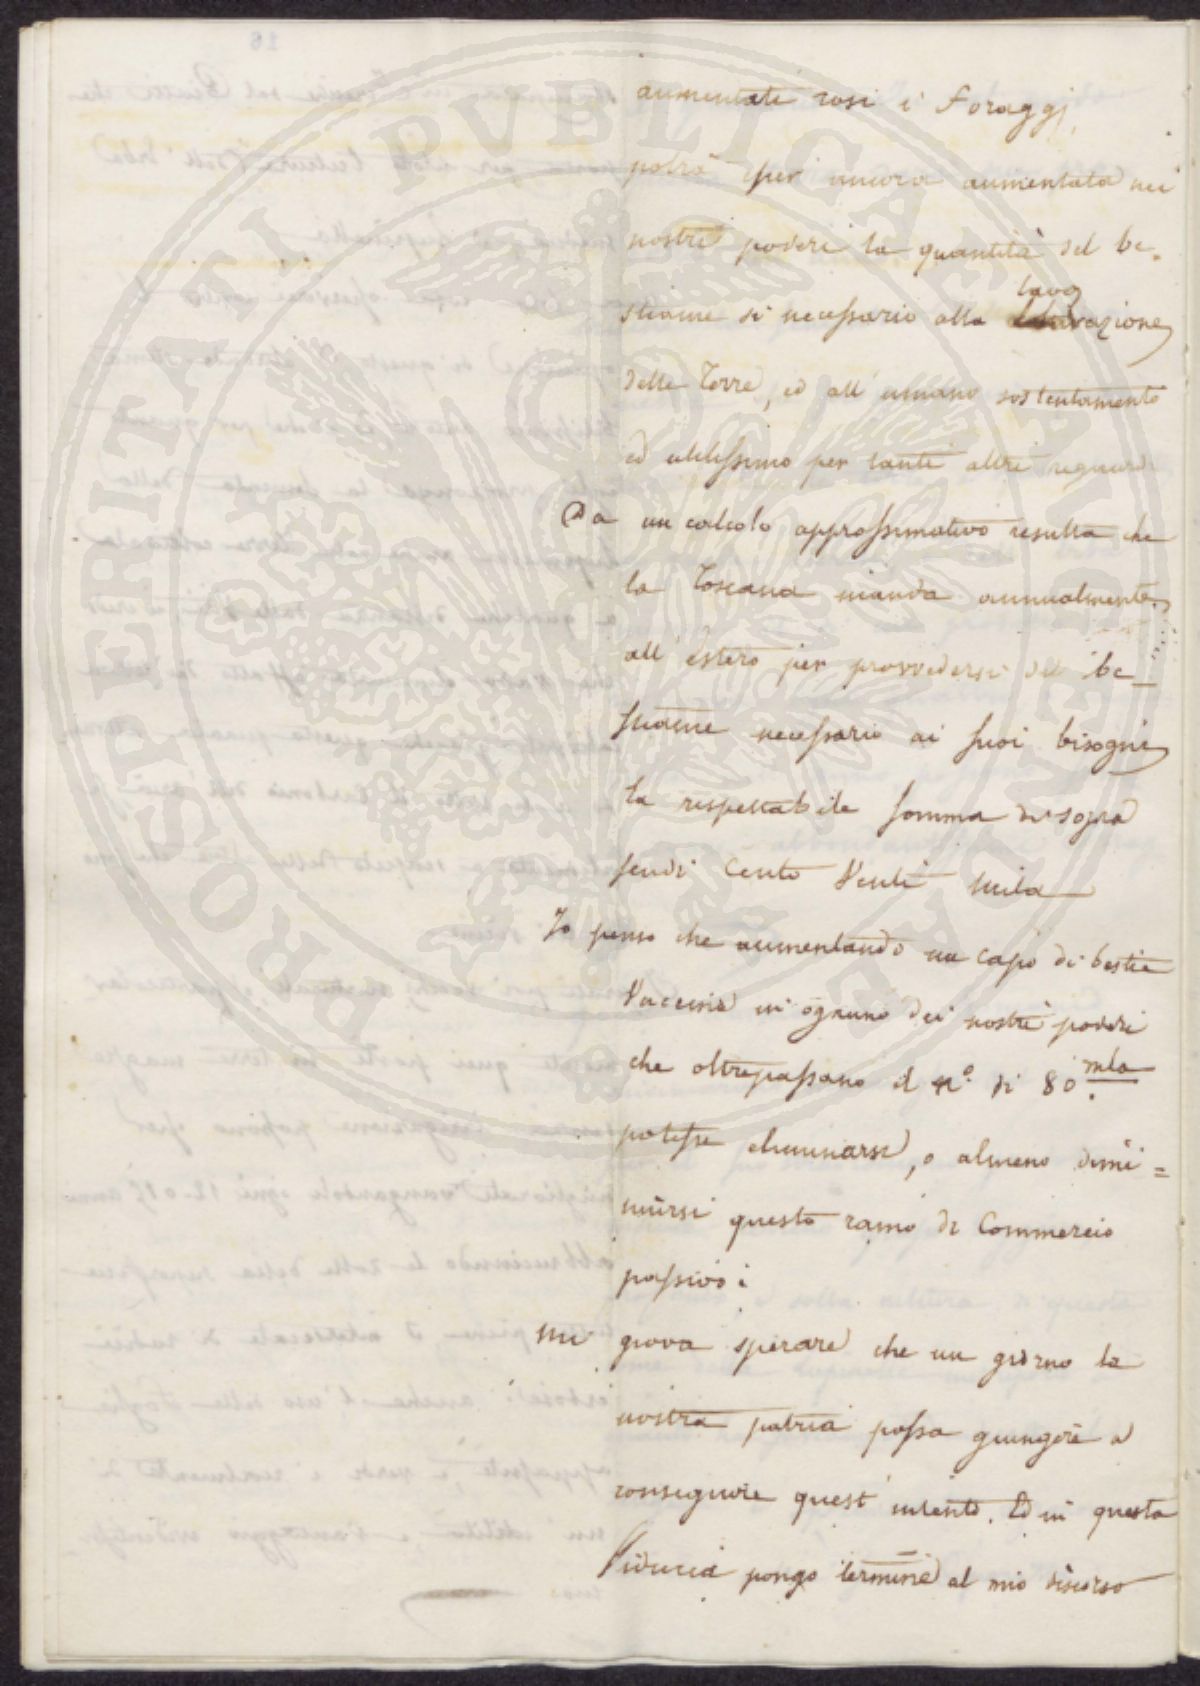 aumentati cosi i Foraggj,
potrà esser ancora aumentata nei
nostri poderi la quantità del be-
stiame si necessario alla lavorazione
delle Terre, ed all'umano sostentamento
ed utilissimo per tanti altri riguardi
Da un calcolo approssimativo resulta che
la Toscana manda annualmente
all'estero per provvedersi del be-
stiame necessario ai suoi bisogni
la respettabile somma di sopra
scudi Cento Venti mila
Io penso che aumentando un capo di bestie
Vaccine in ognuno dei nostri poderi
che oltrepassano il n.º di 80.mla
potesse eliminarsi, o almeno dimi=
nuirsi questo ramo di Commercio
passivo:
Mi giova sperare che un giorno la
nostra patria possa giungere a
conseguire quest'intento. Ed in questa
Fiducia pongo termine al mio discorso
PROSPERITATI PVBLICAE AVGENDAE